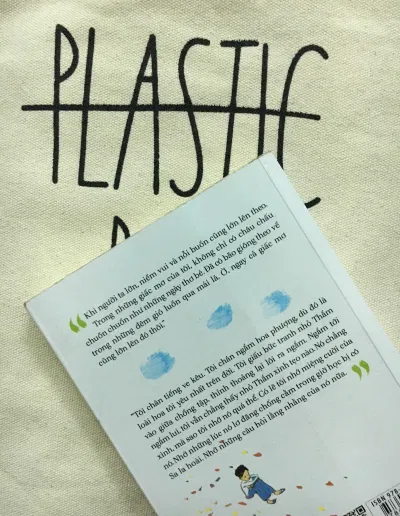 PLASTIC
“Khi người ta lớn, niềm vui và nỗi buồn cũng lớn lên theo.
Trong những giấc mơ của tôi, không chỉ có châu chấu
chuồn chuồn như những ngày thơ bé. Đã có bão giông theo về
trong những đêm gió luồn qua mái lá. Ờ, ngay cả giấc mơ
cũng lớn lên đó thôi.”
“Tôi chán tiếng ve kêu. Tôi chán ngắm hoa phượng dù đó là
loài hoa tôi yêu nhất trên đời. Tôi giấu bức tranh nhỏ Thắm
vào giữa chồng tập, thỉnh thoảng lại lôi ra ngắm. Ngắm tới
ngắm lui, tôi vẫn chẳng thấy nhỏ Thắm xinh tẹo nào. Nó chẳng
xinh, mà sao tôi nhớ nó quá thể. Có lẽ tôi nhớ miệng cười của
nó. Nhớ những lúc nó lo đãng chống cằm trong giờ học bị cô
Sa la hoài. Nhớ những câu hỏi lằng nhằng của nó nữa.”
ISBN 978